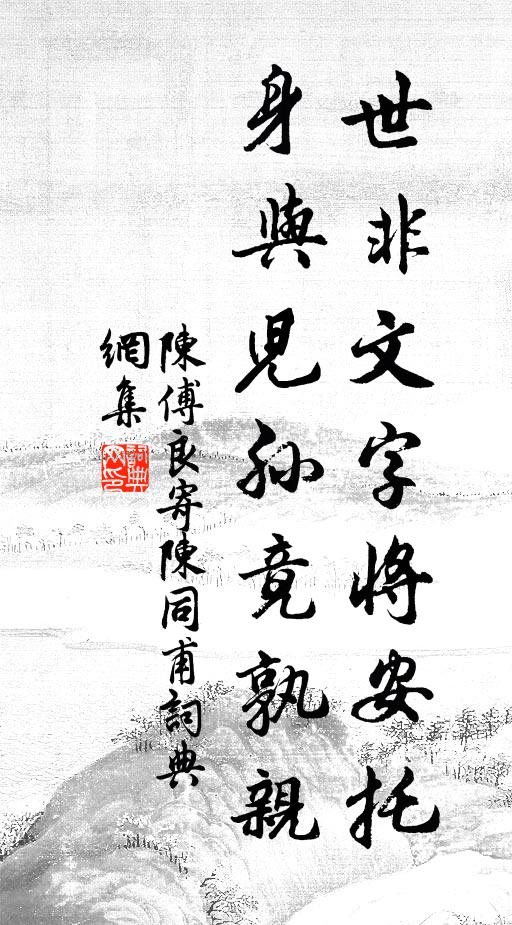 世非文字將安托
身與児孫竟孰親
陳傅良寄陳同甫詞典
網集
詞典
网印